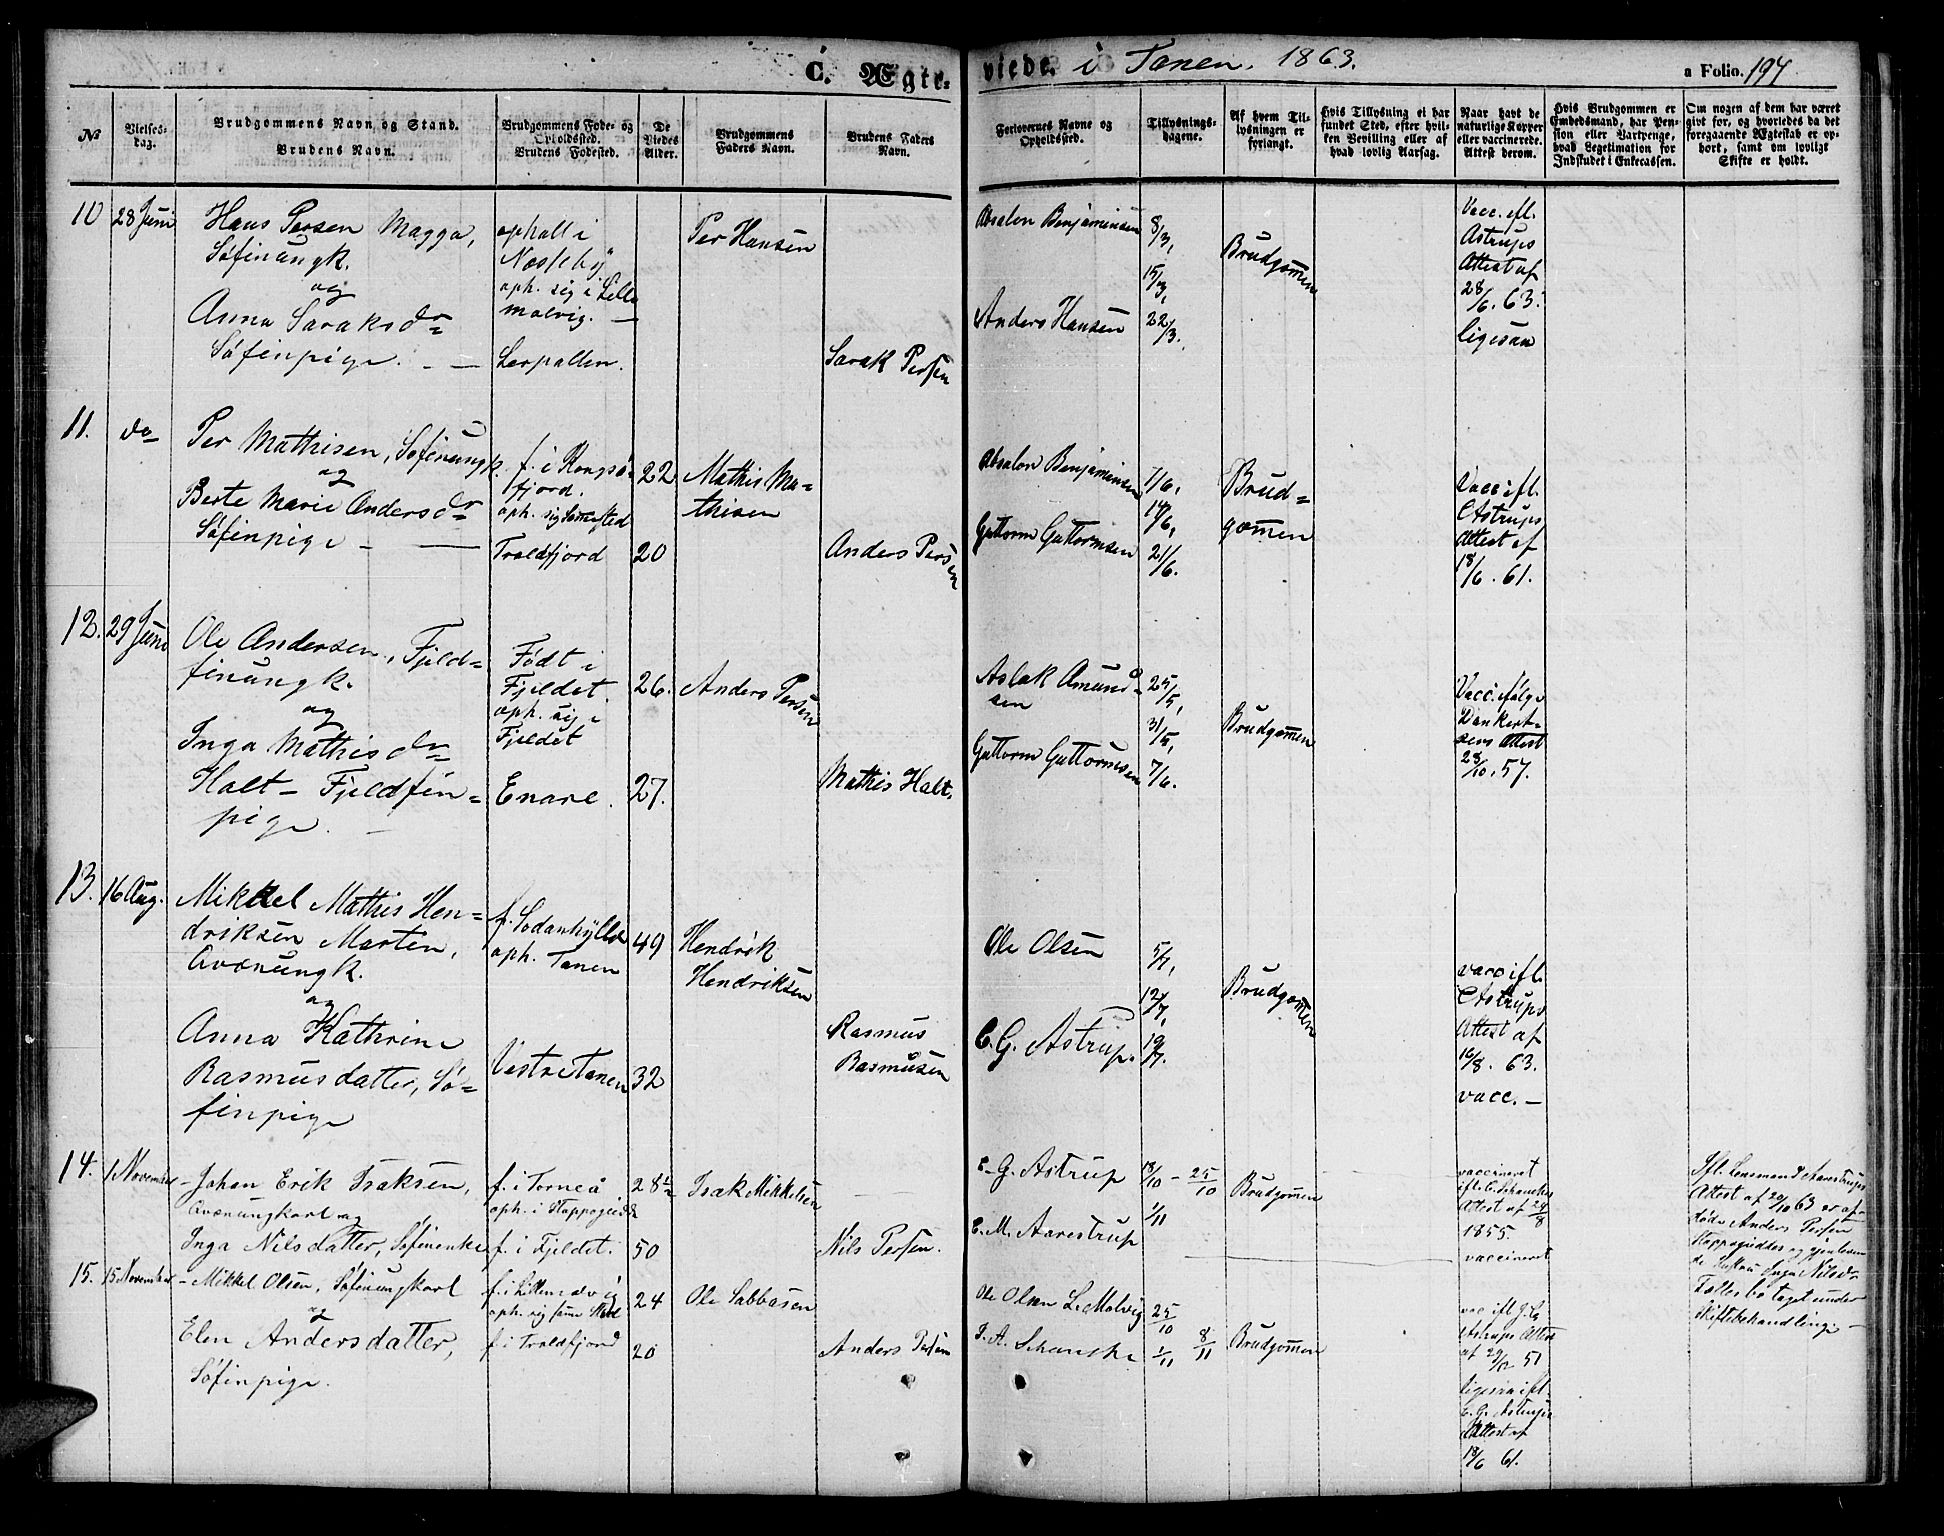 C. Ægte- viede. i Tanen. 1863.
a Folio. 197.
No
Vielses-dag.
Brudgommens Navn og Stand.
Brudens Navn.
Brudgommens Føde- og Opholdssted.
Brudens Fødested.
De Viedes Alder.
Brudgommens Faders Navn.
Brudens Faders Navn.
Forlovernes Navne og Opholdssted.
Tillysnings-dagene.
Af hvem Tillysningen er forlangt.
Hvis Tillysning ei har fundet Sted, efter hvilken Bevilling eller af hvad lovlig Aarsag.
Naar havt de naturlige Kopper eller vaccinerede. Attest derom.
Hvis Brudgommen er Embedsmand, har Pension eller Vartpenge, hvad Legetimation for Indskudet i Enkecassen.
Om nogen af dem har været givt for, og hvorledes da det foregaaende Ægteskab er ophørt, samt om lovligt Skifte er holdt.
10
28 Juni
Hans Persen Magga,
Søfinungk.
og
Anna Saraksdr
Søfinpige. —
ophalt i
Nasseby
oph. sig i Lille
malvig. —
Lerpallen.
Per Hansen
Sarak Persen
Absalon Benjaminsen
Anders Hansen
8/3,
15/3,
22/3.
Brudgomen
Vacc. efl.
Astrups
Attest af
28/6. 63.
ligesaa
11.
do
Per Mathisen, Søfinungk.
og
Berte Marie Andersdr
Søfinpige — —
f. i Kongsø-
fjord.
oph. sig samested
Troldfjord
22
20
Mathis Ma-
thisen
Anders Persen
Absalon Benjaminsen
Guttorm Guttormsen
7/6,
14/6,
21/6.
Brud=
gomen
Vacc ifl.
C Astrups
Attest af
18/6. 61.
12.
29 Juni
Ole Andersen, Fjeld=
finungk.
og
Inga Mathisdr
Halt — Fjeldfin=
pige. —
Født i
Fjeldet.
oph. sig i
Fjeldet
Enare.
26.
27.
Anders Persen
Mathis Halt.
Aslak Amund=
sen
Guttorm Guttormsen
25/5,
31/5,
7/6.
Brudgomen
Vacc. ifølge
Dankert=
sens Attest
28/10. 57.
13.
16 Aug.
Mikkel Mathis Hen=
driksen Marten,
Qvænungk.
og
Anna Kathrine
Rasmusdatter, Sø=
finpige
f. Sodankylle
oph. Tanen
Vestre Tanen
49
32
Hendrik
Hendriksen
Rasmus
Rasmusen
Ole Olsen
C. G. Astrup.
5/7,
12/7,
19/7.
Brudgomen
vacc ifl.
C Astrups
Attest af
16/8. 63.
vacc. —
14.
1 November
Johan Erik Isaksen,
Qvænungkarl og
Inga Nilsdatter, Søfinenke
f. i Torneå
oph. i Stappogiedde
f. i Fjeldet.
28 1/2
50
Isak Mikkelsen
Nils Persen.
C. G. Astrup
C. M. Aarestrup
18/10 - 25/10
1/11
Brudgomen
vaccineret
ifl. C. Schanches
Attest af 29/8
1855.
vaccineret
Ifl. Lensmand Aarestrups
Attest af 29/10 63 er af-
døde Anders Persen
Stappogieddes og gjenleven
de Hustru Inga Nilsdr
Fællesbo taget under
Skiftebehandling. —
15.
15 November
Mikkel Olsen, Søfinungkarl
og
Elen Andersdatter,
Søfinpige.
f. i Lillemolvig
oph. sig same Sted
f. i Troldfjord
24
20
Ole Sabbasen
Anders Persen
Ole Olsen L. Molvig
J. A. Schanche
25/10
1/11 8/11
Brudgomen
vac ifl
Astrups Attest
af 29/12 51
ligesaa ifl.
C. G. Astrups
Attest af
18/6 61.